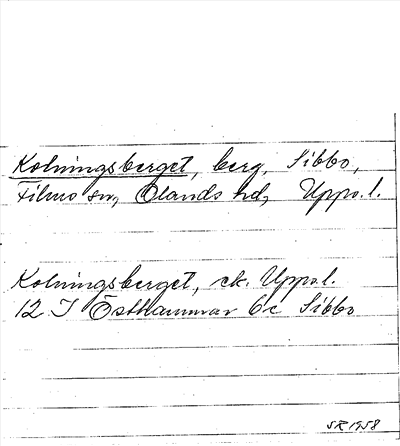 Kolningsberget, berg, Sibbo,
Films sn, Olands hd, Upps. l.
Kolningsberget, ek. Upps. l.
12 I Östhammar 6c Sibbo
SR 1958